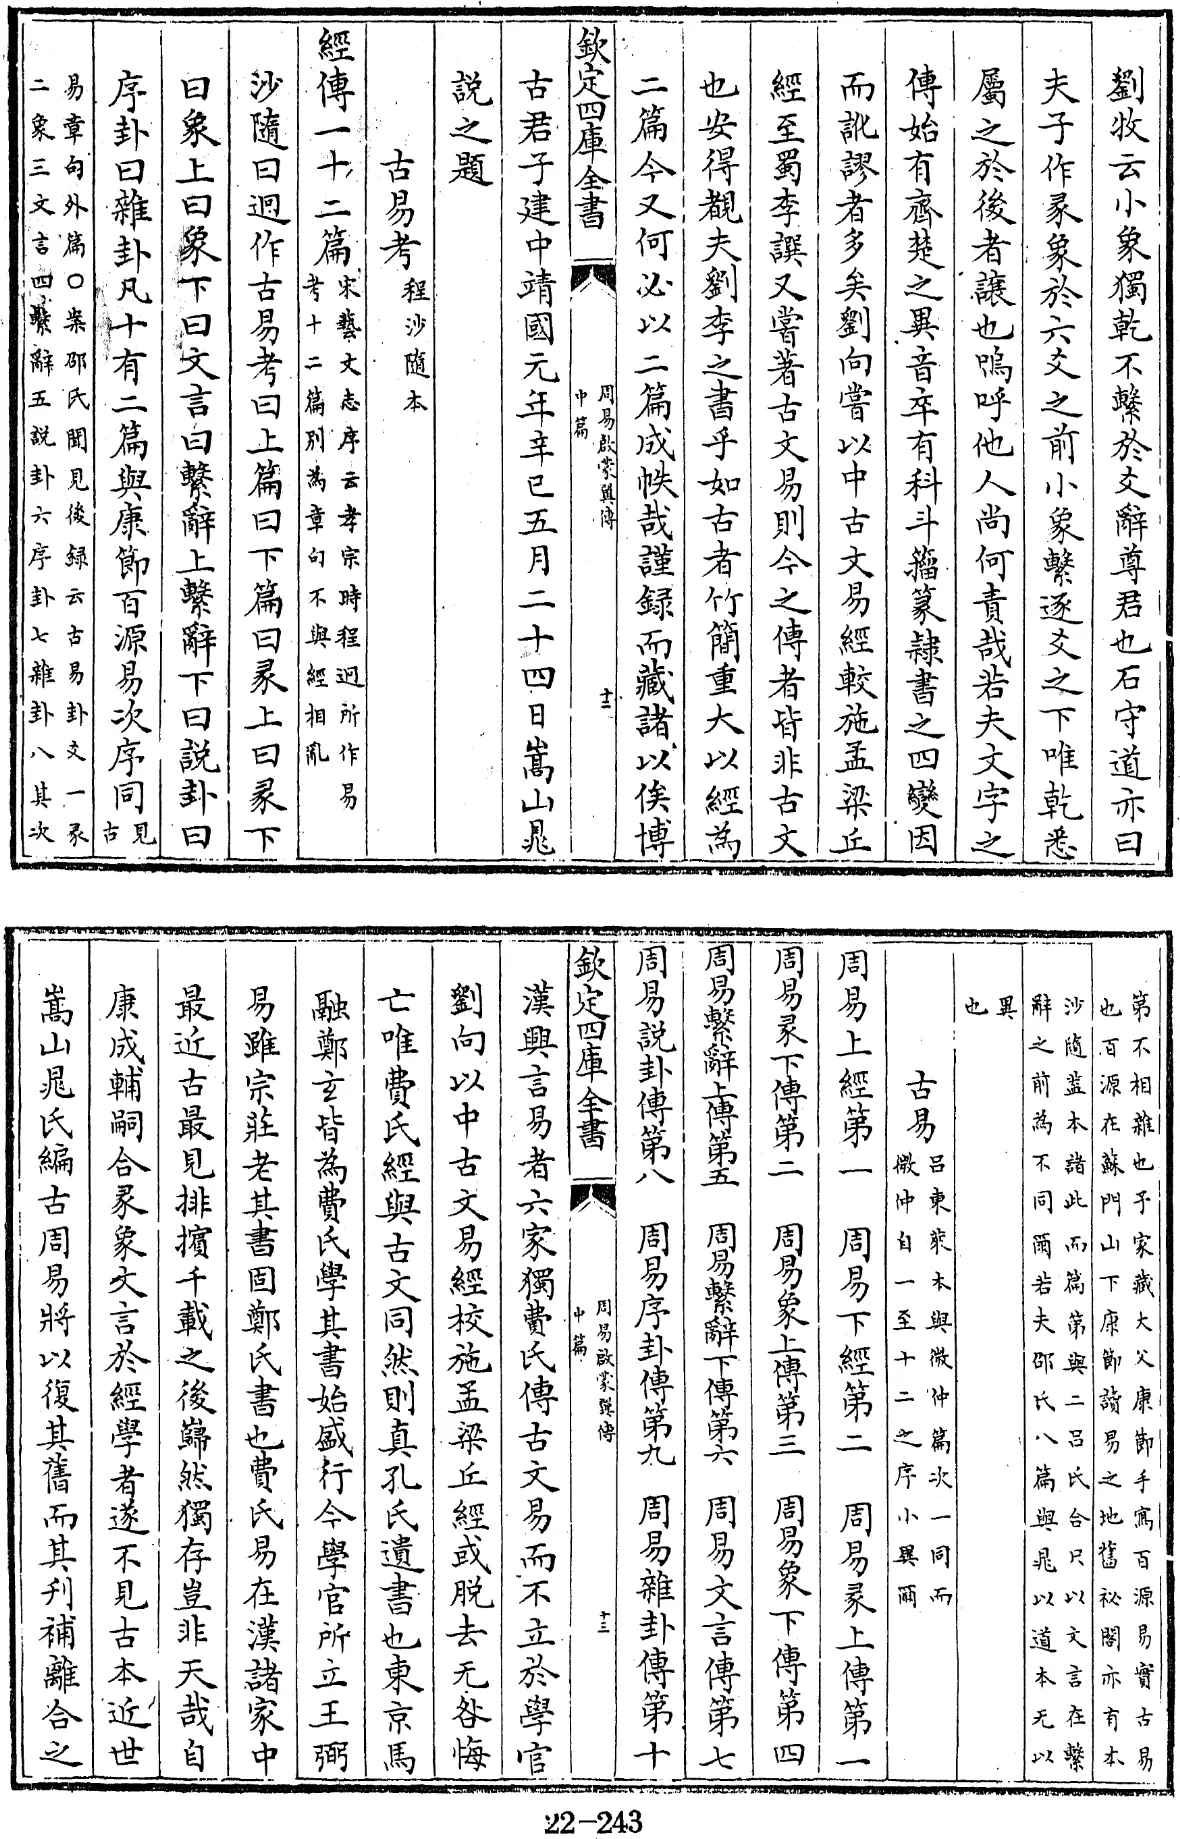 劉牧云小象獨乾不繫於爻辭尊君也石守道亦曰
夫子作彖象於六爻之前小象繫逐爻之下唯乾悉
屬之於後者讓也嗚呼他人尚何責哉若夫文字之
傳始有齊楚之異音卒有科斗籀篆隷書之四變因
而訛謬者多矣劉向嘗以中古文易經較施孟梁丘
經至蜀李譔又嘗著古文易則今之傳者皆非古文
也安得覩夫劉李之書乎如古者竹簡重大以經為
二篇今又何必以二篇成帙哉謹録而藏諸以俟博
欽定四庫全書
周易啟蒙翼傳
中篇
十二
古君子建中靖國元年辛巳五月二十四日嵩山晁
説之題
古易考程沙隨本
經傳一十二篇宋藝文志序云孝宗時程迥所作易
考十二篇别為章句不與經相亂
沙隨曰迥作古易考曰上篇曰下篇曰彖上曰彖下
曰象上曰象下曰文言曰繫辭上繫辭下曰説卦曰
序卦曰雜卦凡十有二篇與康節百源易次序同見
古
易章句外篇○案邵氏聞見後録云古易卦爻一彖
二象三文言四繫辭五説卦六序卦七雜卦八其次
第不相雜也予家藏大父康節手寫百源易實古易
也百源在蘇門山下康節讀易之地舊秘閣亦有本
沙隨葢本諸此而篇第與二呂氏合只以文言在繫
辭之前為不同爾若夫邵氏八篇與晁以道本无以
異
也
古易呂東萊本與微仲篇次一同而
微仲自一至十二之序小異爾
周易上經第一 周易下經第二 周易彖上傳第一
周易彖下傳第二 周易象上傳第三 周易象下傳第四
周易繫辭上傳第五 周易繫辭下傳第六 周易文言傳第七
周易説卦傳第八 周易序卦傳第九 周易雜卦傳第十
欽定四庫全書
周易啟蒙翼傳
中篇
十三
漢興言易者六家獨費氏傳古文易而不立於學官
劉向以中古文易經校施孟梁丘經或脱去无咎悔
亡唯費氏經與古文同然則真孔氏遺書也東京馬
融鄭玄皆為費氏學其書始盛行今學官所立王弼
易雖宗莊老其書固鄭氏書也費氏易在漢諸家中
最近古最見排擯千載之後巋然獨存豈非天哉自
康成輔嗣合彖象文言於經學者遂不見古本近世
嵩山晁氏編古周易將以復其舊而其刋補離合之
22-243